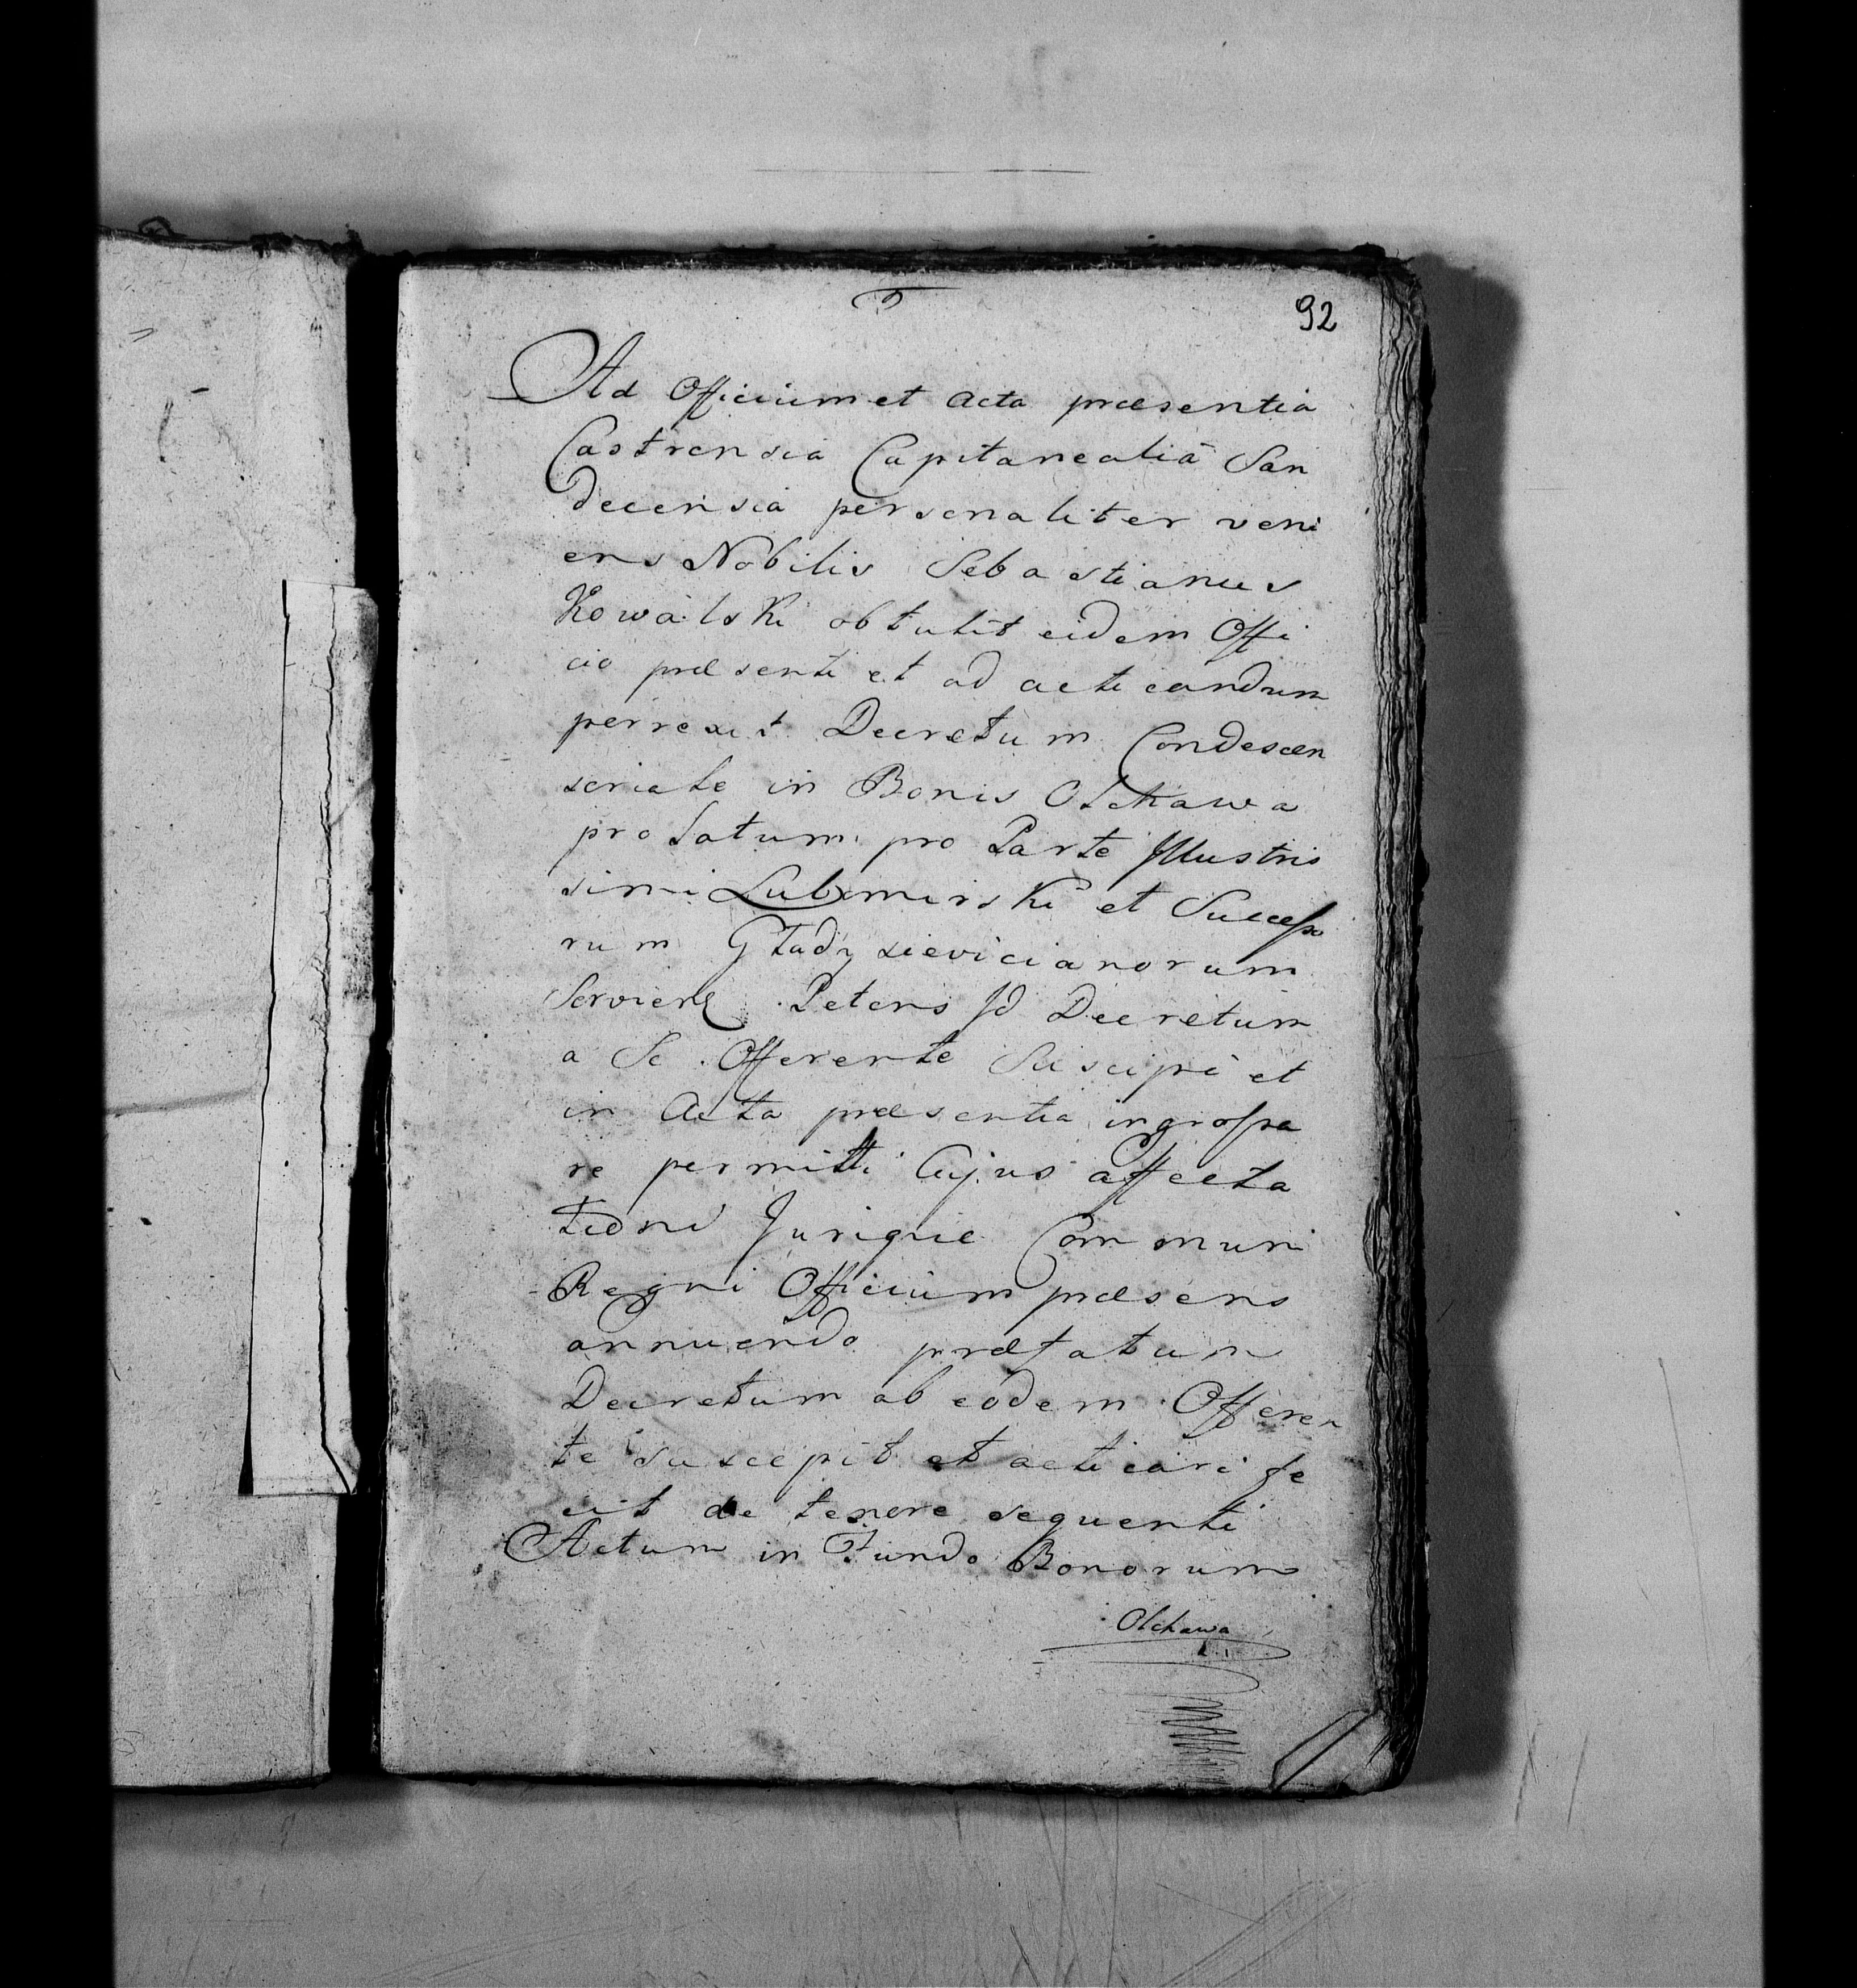 92
Ad Officium et Acta præsentia
Castrensia Capitanealia San
decensia personaliter veni
ens Nobilis Sebastianus
Kowalski obtulit eidem Offi
cio præsenti et ad acticandum
perrexit Decretum Condescen
soriale in Bonis Olchawa
prolatum pro Parte Illustris
simi Lubomirski et Successo
rum Gładysievicianorum
Serviens Petens Id Decretum
a Se Offerente Suscipi et
in Acta præsentia ingrossa
re permitti Cujus affecta
tioni Jurique Communi
Regni Officium præsens
annuendo præfatum
Decretum ab eodem Offeren
te suscepit et acticari fe
cit de tenore sequenti
Actum in Fundo Bonorum
Olchawa